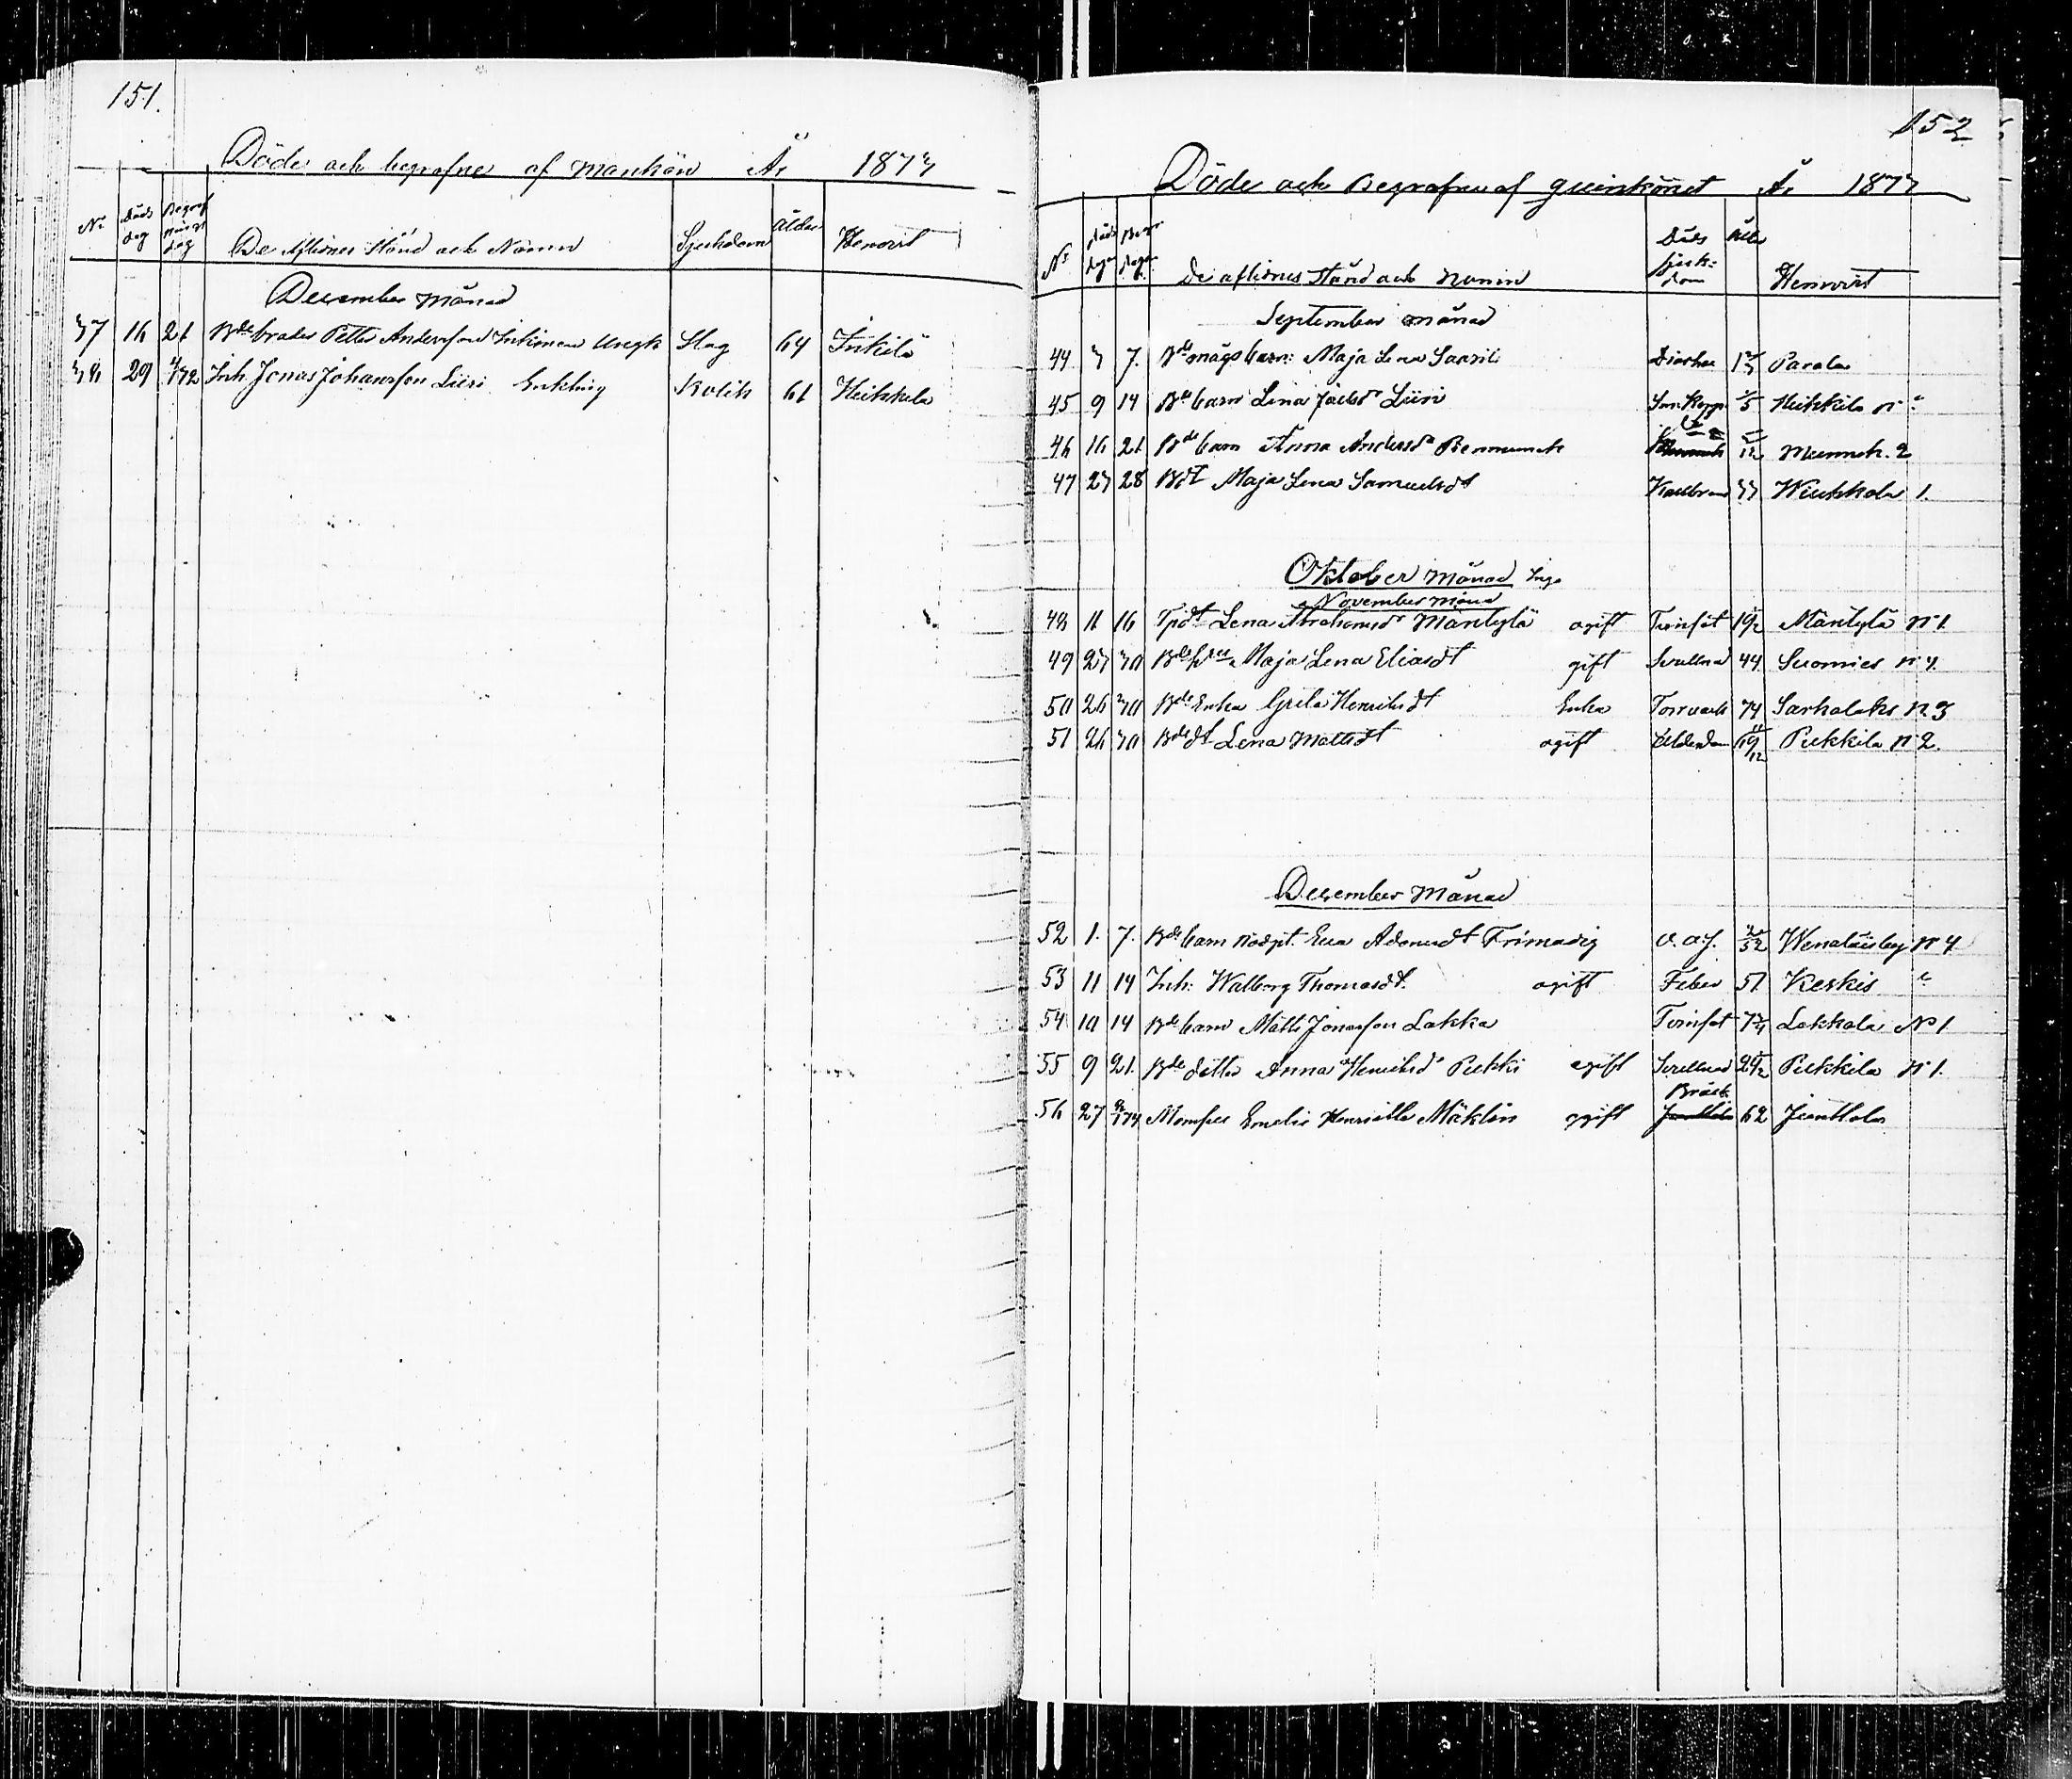 151.
Döde och begrafne af Mankön År 1873
No Döds dag Begrafnings dag De Aflidnes Stånd och Namn Sjukdom Ålder Hemvist
December Månad
37 16 21 Bde broder Petter Andersson Inkinen Slag 64 Inkilä
38 29 4/1 72 Inh. Jonas Johansson Liiri Enkling Kolik 61 Heikkala
152
Döde och Begrafne af quinkönet År 1873
No Döds dagar Begr dagar De aflidnes Stånd och namn Döds sjukdom Ålder Hemvist
September månad
44 3 7. Bde mågs barn: Maja Lena Saarili Diarhe Parala
45 9 14 Bde barn Lina Joelsdr Liiri Heikkilä
46 16 21 Bde barn Anna Andersdr Munnuk. 2
47 23 28 Bdt Maja Lena Samuelsdt Kallbrand 33 Wiukkala 1.
Oktober månad Inga
November månad
48 11 16 Tpdt Lena Abrahamsdr Mäntylä ogift Tvinsot 19/2 Mäntylä No 1.
49 23 30 Bde hru Maja Lena Eliasdt gift Svullnad 44 Suomies No 4.
50 26 30 Bde Enka Greta Henriksdt Enka Torrvärk 74 Sarkalaks No 3
51 26 30 Bde dt Lena Mattsdt ogift Ålderdom Pukkila No 2.
December Månad
52 1. 7. Bde barn nödpt. Eva Adamsdt o. af. Wenäläisby No 4
53 11 14 Inh: Walborg Thomasdt. ogift Feber 51 Keskis
54 10 14 Bde barn Matts Jonasson Lakka Tvinsot Lakkala No 1
55 9 21. Bde dotter Anna Henriksdr Pukki ogift Svullnad Pukkila No 1.
Bråck
56 27 Mamsel Emelie Henriette Mäklin ogift 62 Junttola